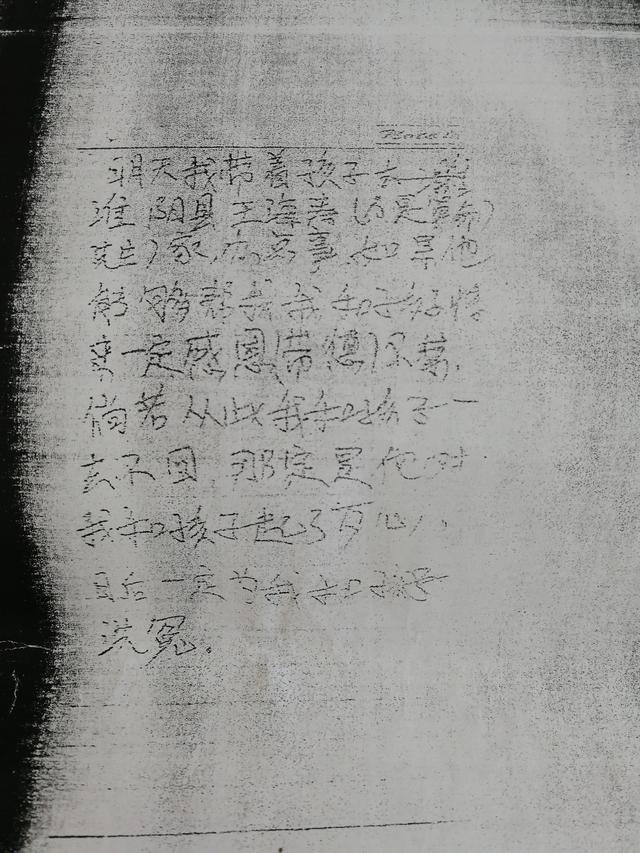 明天我带着孩子去
淮阴县王海春(是算命
先生)家,办点事,如果他
能够帮我我和孩子
一定感恩(带德)不尽,
倘若从此我和孩子一
去不回,那定是他对
我和孩子起了歹心,
日后一定为我和孩子
洗冤.